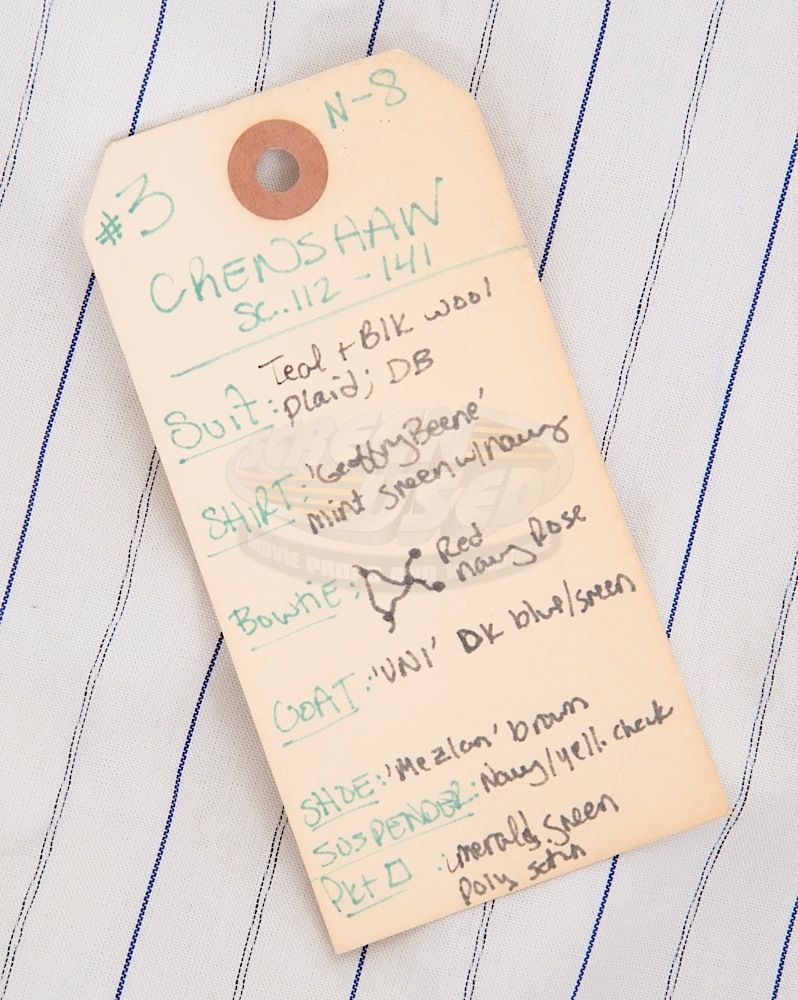 N-8
#3
CRENSHAW
SC.112-141
Teal + Blk wool
Suit: Plaid; DB
SHIRT: 'Geoffry Beene'
mint green w/navy
BOWTIE: Red
navy Rose
COAT: 'UNI' DK blue/green
SHOE: 'Mezlan' brown
SUSPENDER: Navy/yell. check
Pkt □ : emerald green
Poly satin
SCREEN
USED
MOVIE PROPS AND